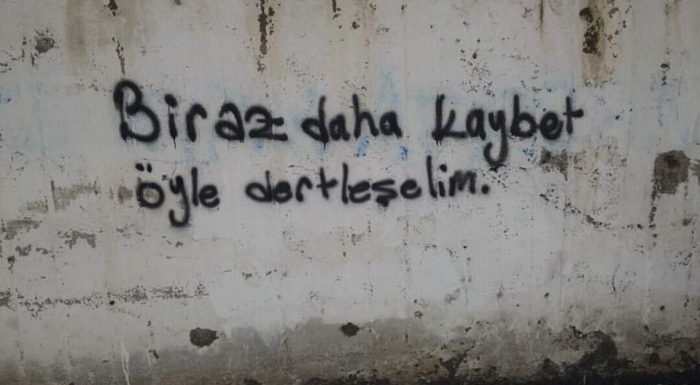 Biraz daha kaybet
öyle dertleşelim.